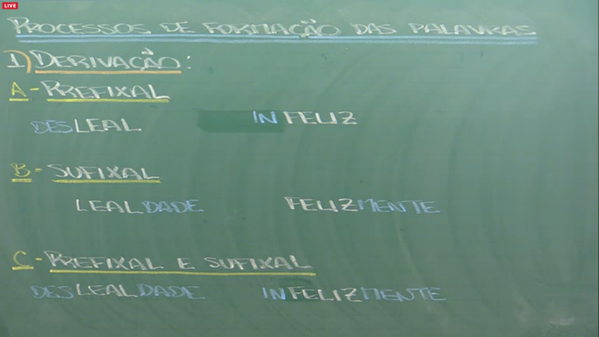 LIVE
PROCESSOS DE FORMAÇÃO DAS PALAVRAS
1) DERIVAÇÃO:
A - PREFIXAL
DESLEAL INFELIZ
B - SUFIXAL
LEALDADE FELIZMENTE
C - PREFIXAL E SUFIXAL
DESLEALDADE INFELIZMENTE